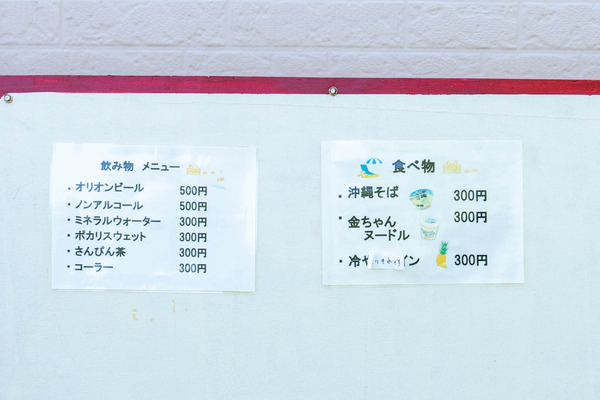 飲み物 メニュー
・オリオンビール 500円
・ノンアルコール 500円
・ミネラルウォーター 300円
・ポカリスウェット 300円
・さんぴん茶 300円
・コーラー 300円
食べ物
・沖縄そば 300円
・金ちゃん 300円
ヌードル
・冷や イン 300円